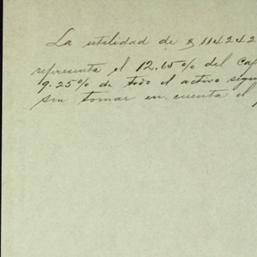 La utilidad de $ 114242
representa el 12.65% del cap
9.25% de todo el activo segun
sin tomar en cuenta el